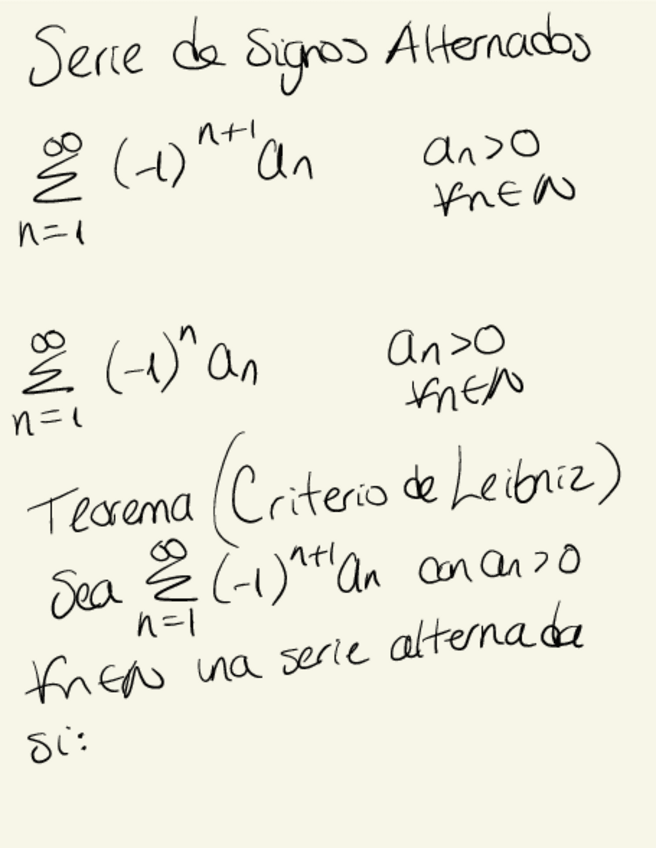 Serie de Signos Alternados
∞∑n=1 (-1)^{n+1} an an>0
∀n∈N
∞∑n=1 (-1)^n an an>0
∀n∈N
Teorema (Criterio de Leibniz)
Sea ∞∑n=1 (-1)^{n+1} an con an>0
∀n∈N una serie alternada
si: